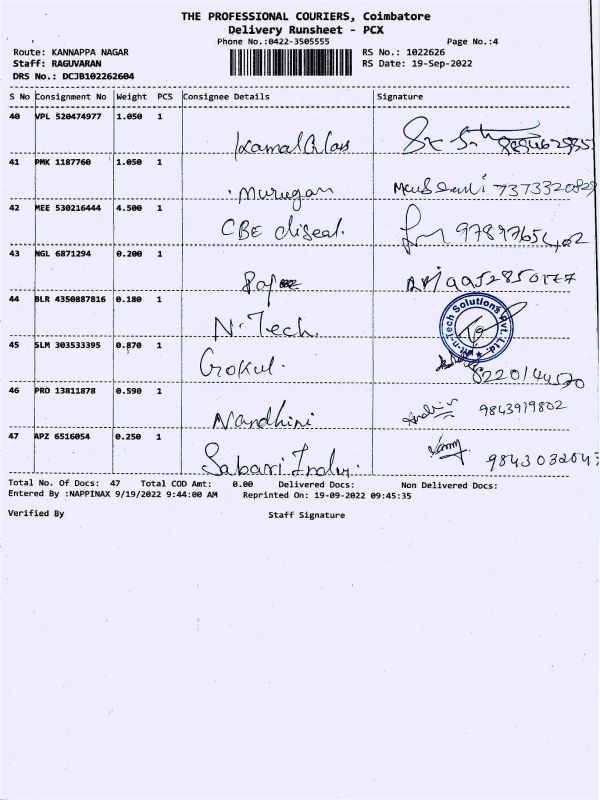 THE PROFESSIONAL COURIERS, Coimbatore
Delivery Runsheet - PCX
Phone No.:0422-3505555 Page No.:4
Route: KANNAPPA NAGAR RS No.: 1022626
Staff: RAGUVARAN RS Date: 19-Sep-2022
DRS No.: DCJB102262604
S No Consignment No Weight PCS Consignee Details Signature
40 VPL 520474977 1.050 1
41 PMK 1187760 1.050 1
murugan 7373320829
42 MEE 530216444 4.500 1
CBE diseal.
43 NGL 6871294 0.200 1
44 BLR 4350887816 0.180 1
N-Tech.
45 SLM 303533395 0.870 1
Gokul. 8220144570
46 PRO 13811878 0.590 1
Nandhini 9843919802
47 APZ 6516054 0.250 1
Sabari Indu.
Total No. Of Docs: 47 Total COD Amt: 0.00 Delivered Docs: Non Delivered Docs:
Entered By :NAPPINAX 9/19/2022 9:44:00 AM Reprinted On: 19-09-2022 09:45:35
Verified By Staff Signature